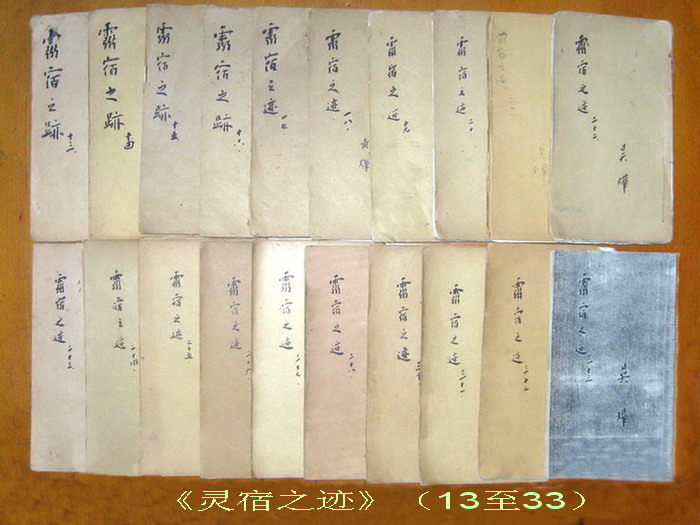 靈宿之跡 十三
靈宿之跡 十四
靈宿之跡 十五
靈宿之跡 十六
靈宿之迹 一七
靈宿之迹 一八
吳燁
靈宿之迹 十九
靈宿之迹 二十
靈宿之迹 二十二
吳燁
靈宿之迹 二十三
靈宿之迹 二十四
靈宿之迹 二十五
靈宿之迹 二十六
靈宿之迹 二十七
靈宿之迹 二十八
靈宿之迹 三十
靈宿之迹 三十一
靈宿之迹 三十二
靈宿之迹 三十三
吳燁
《灵宿之迹》（13至33）